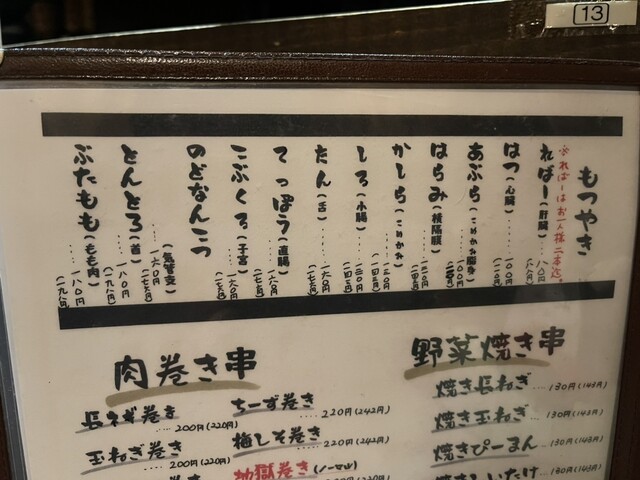 13
もつやき
※ればーはお一人様二本迄。
ればー(肝臓)‥‥一八〇円
はつ(心臓)‥‥一〇〇円(一一〇円)
あぶら(こめかみ脂身)‥‥一〇〇円
はらみ(横隔膜)
かしら(こめかみ)‥‥一三〇円(一四三円)
しろ(小腸)‥‥一三〇円(一四三円)
たん(舌)‥‥一六〇円(一七六円)
てっぽう(直腸)‥‥一六〇円(一七六円)
こぶくろ(子宮)‥‥一六〇円(一七六円)
のどなんこつ(気管支)‥‥一六〇円(一七六円)
とんとろ(首)‥‥一八〇円(一九八円)
ぶたもも(もも肉)‥‥一八〇円(一九八円)
野菜焼き串
焼き長ねぎ‥‥130円(143円)
焼き玉ねぎ‥‥130円(143円)
焼きぴーまん‥‥130円(143円)
焼きしいたけ
肉巻き串
長ネギ巻き‥‥200円(220円)
玉ねぎ巻き‥‥200円(220円)
ちーず巻き‥‥220円(242円)
梅しそ巻き‥‥220円(242円)
地獄巻き